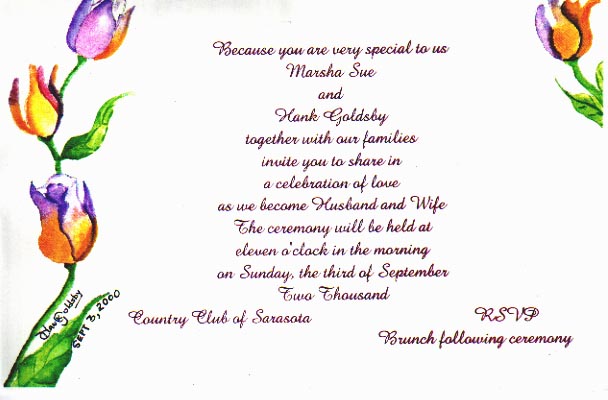 Because you are very special to us
Marsha Sue
and
Hank Goldsby
together with our families
invite you to share in
a celebration of love
as we become Husband and Wife
The ceremony will be held at
eleven o'clock in the morning
on Sunday, the third of September
Two Thousand
Country Club of Sarasota
RSVP
Brunch following ceremony
Hank Goldsby
SEPT 3, 2000